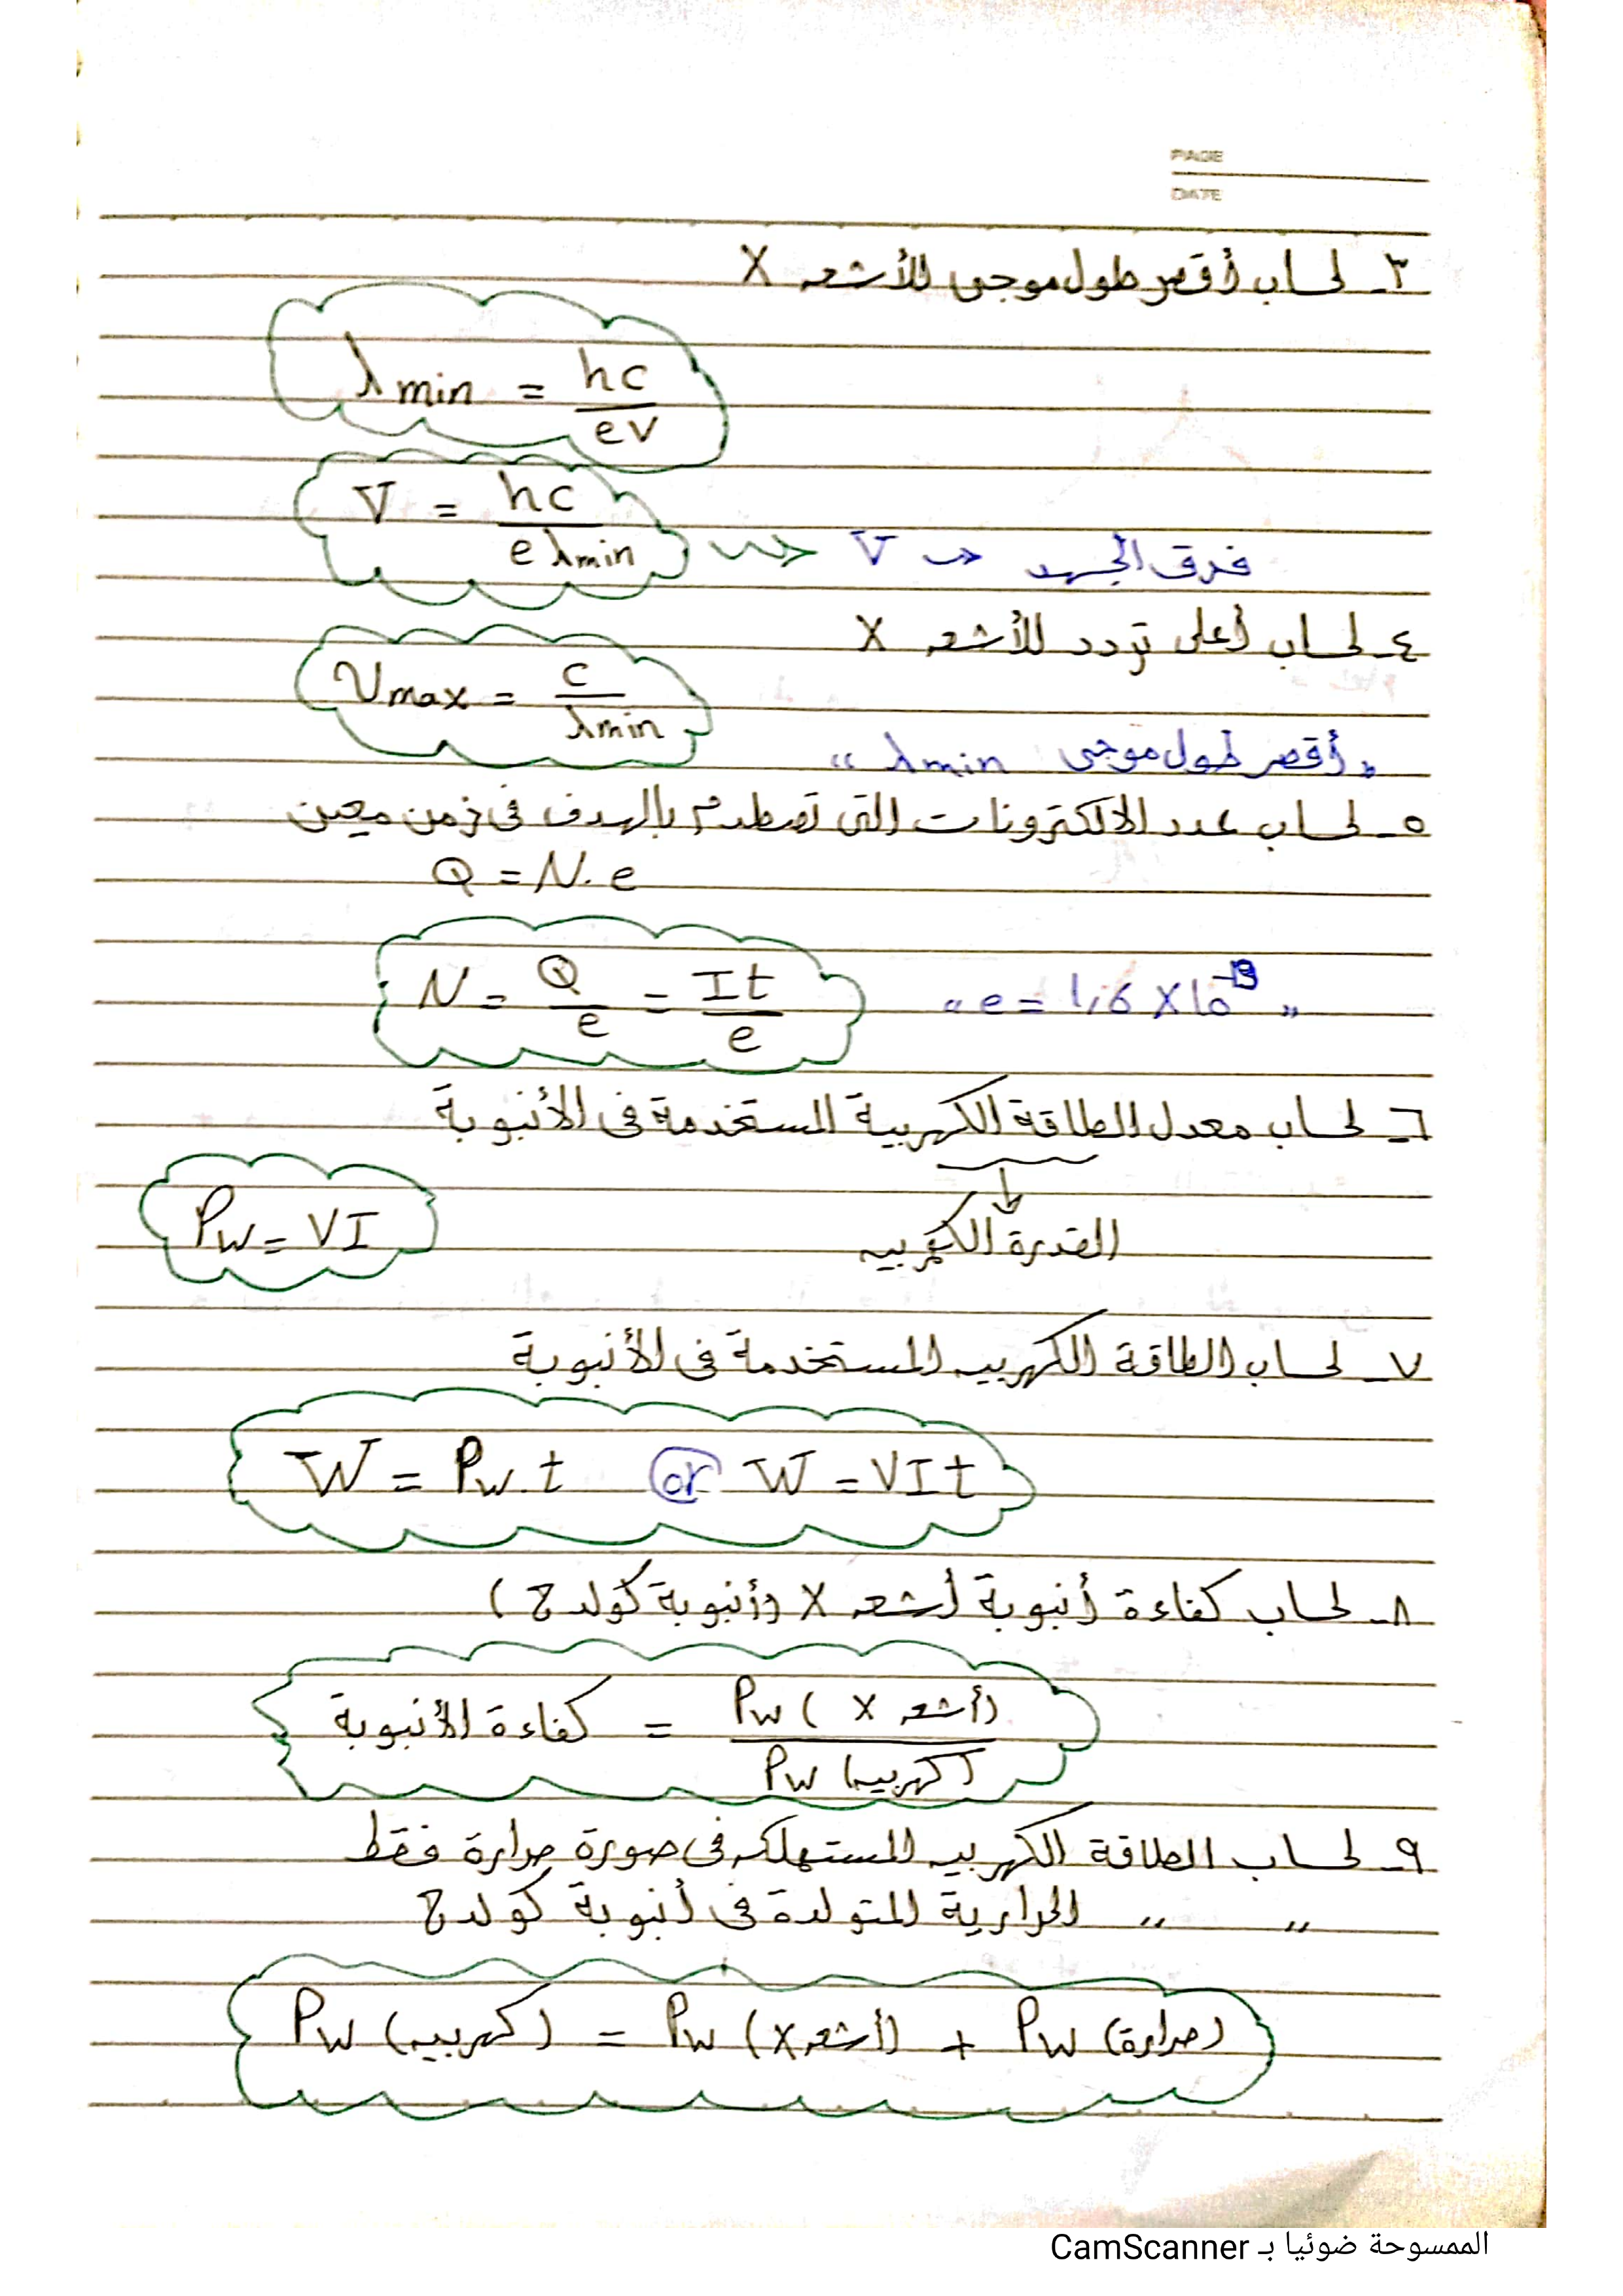 PAGE
DATE
٣- لحساب أقصر طول موجى للأشعه X
λmin = hc / eV
V = hc / e λmin ⇝ V → فرق الجهد
٤- لحساب أعلى تردد للأشعه X
νmax = c / λmin
"أقصر طول موجى λmin"
٥- لحساب عدد الالكترونات التى تصطدم بالهدف فى زمن معين
Q = N. e
N = Q / e = It / e "e = 1,6 X 10^-19"
٦- لحساب معدل الطاقة الكهربية المستخدمة فى الأنبوبة
القدرة الكهربيه
Pw = VI
٧- لحساب الطاقة الكهربيه المستخدمة فى الأنبوبة
W = Pw. t or W = VIt
٨- لحساب كفاءة أنبوبة أشعه X (أنبوبة كولدج)
كفاءة الأنبوبة = Pw (أشعه X) / Pw (كهربيه)
٩- لحساب الطاقة الكهربيه المستهلكه فى صورة حرارة فقط
" " الحرارية المتولدة فى أنبوبة كولدج
Pw (كهربيه) = Pw (أشعه X) + Pw (حرارة)
الممسوحة ضوئيا بـ CamScanner